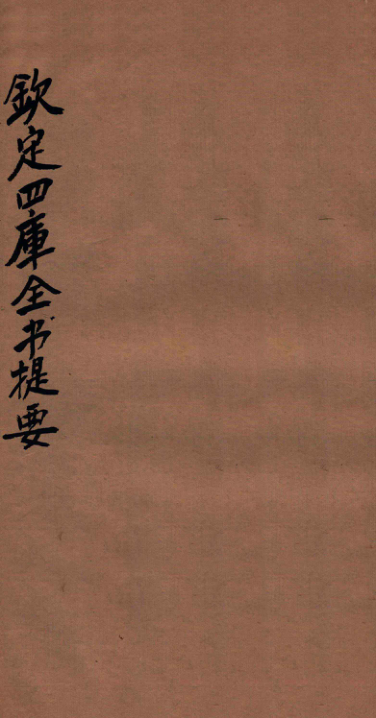 钦定四庫全书提要